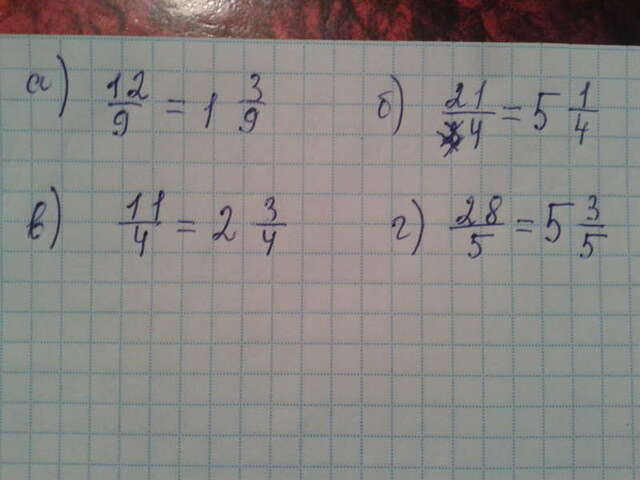 а) 12/9 = 1 3/9 б) 21/4 = 5 1/4
в) 11/4 = 2 3/4 г) 28/5 = 5 3/5